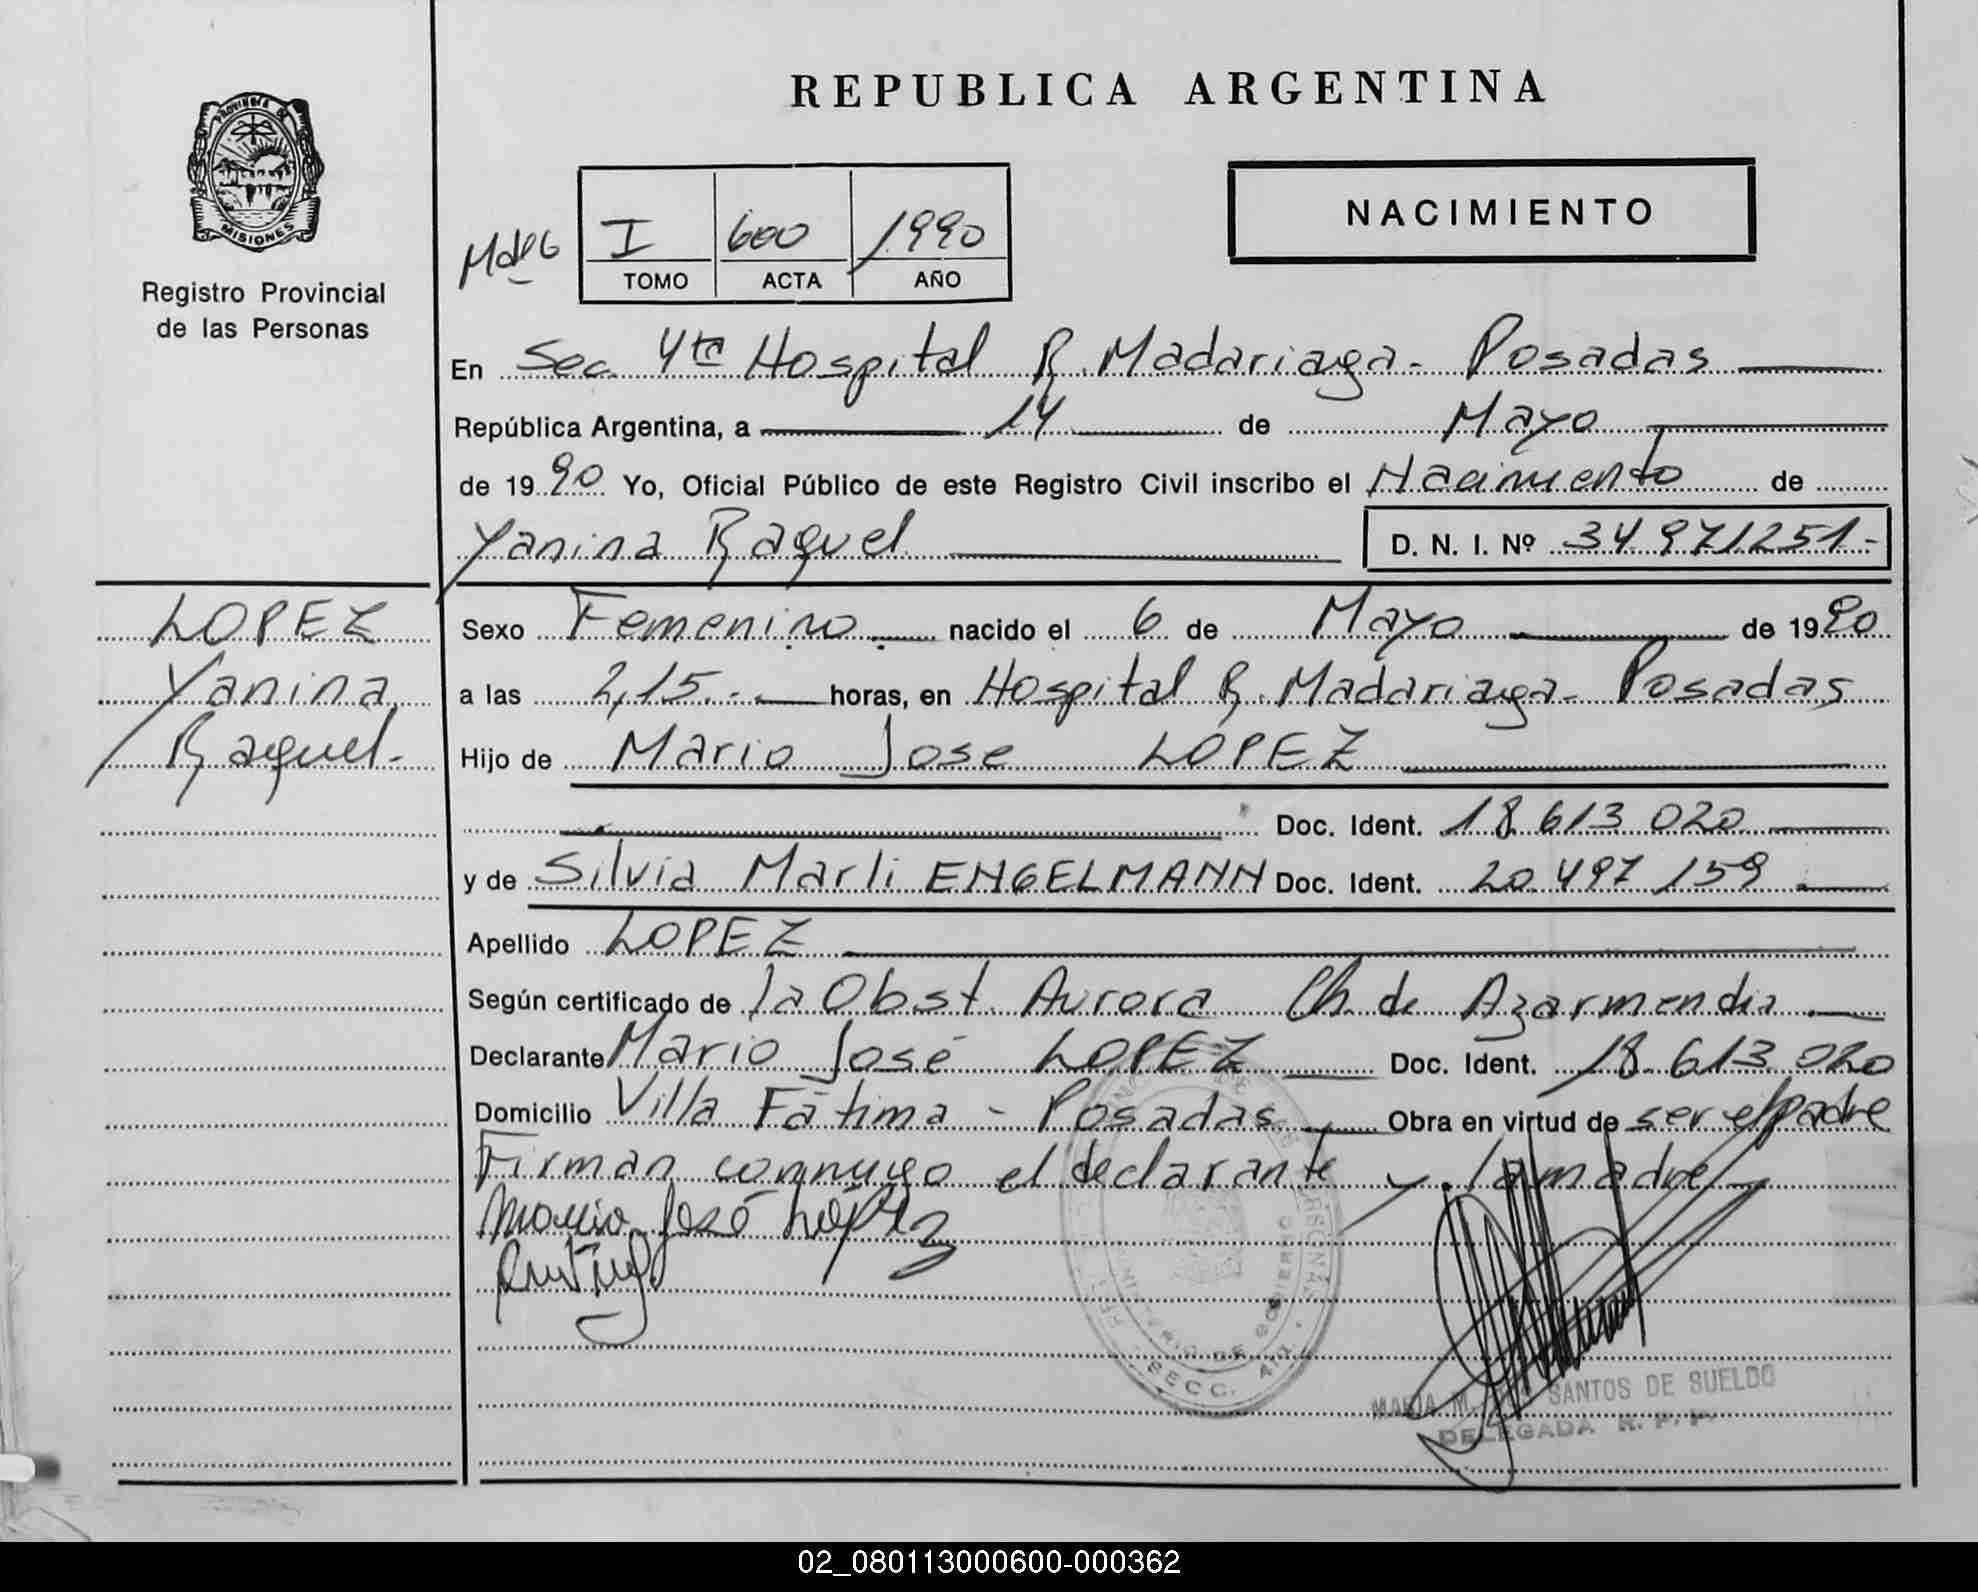 PROVINCIA DE
MISIONES
Registro Provincial
de las Personas
REPUBLICA ARGENTINA
NACIMIENTO
I 600 1990
TOMO ACTA AÑO
En Sec. 4ta Hospital R. Madariaga - Posadas
República Argentina, a 14 de Mayo
de 1990 Yo, Oficial Público de este Registro Civil inscribo el Nacimiento de
Yanina Raquel D. N. I. Nº 34 971251.-
LOPEZ
Yanina
Raquel.-
Sexo Femenino nacido el 6 de Mayo de 1990
a las 2,15.- horas, en Hospital R. Madariaga - Posadas
Hijo de Mario Jose LOPEZ
Doc. Ident. 18 613 020
y de Silvia Marli ENGELMANN Doc. Ident. 20 497 159
Apellido LOPEZ
Según certificado de la Obst. Aurora Ch. de Azarmendia
Declarante Mario José LOPEZ Doc. Ident. 18.613.020
Domicilio Villa Fátima - Posadas Obra en virtud de ser el padre
Firman conmigo el declarante y la madre
Mario José López
MINISTERIO DE GOBIERNO
SECC. 4ta
MARIA M. SANTOS DE SUELDO
DELEGADA R. P. P.
02_080113000600-000362